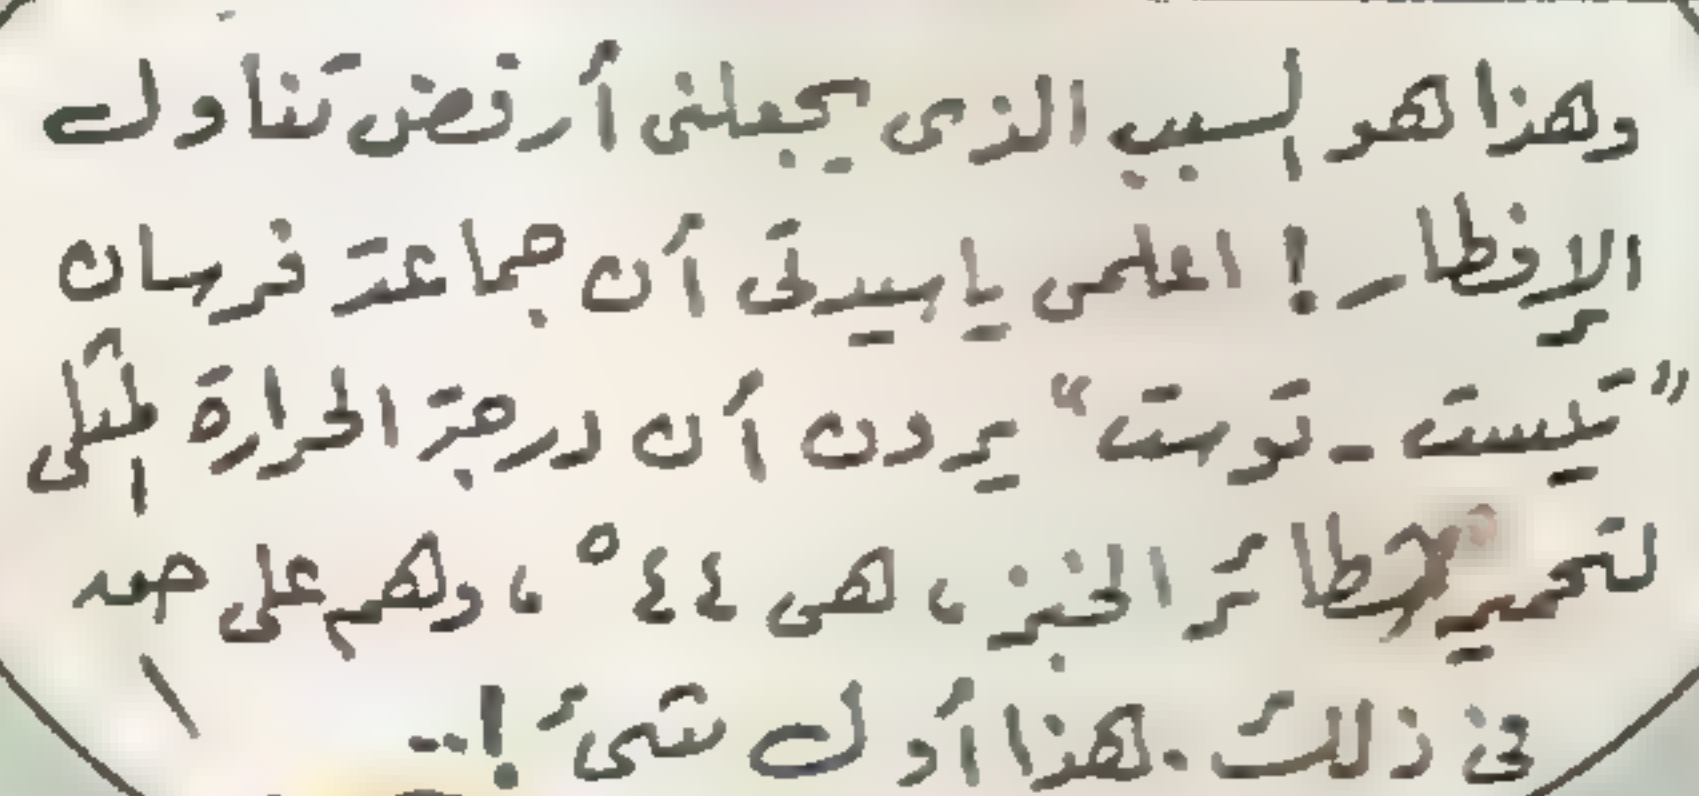 وهذا هو السبب الذى يجعلنى أرفض تناول
الإفطار! اعلمى يا سيدتى أن جماعة فرسان
"تيست - توست" يرون أن درجة الحرارة المثلى
لتحمير شطائر الخبز، هى ٤٤°، وهم على حق
فى ذلك. هذا أول شىء!..